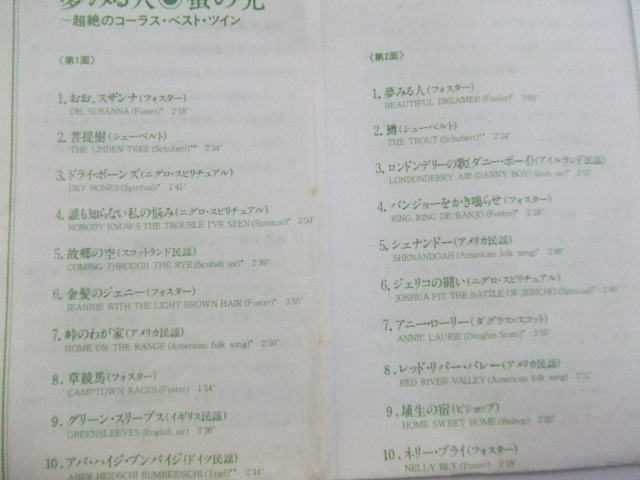 夢みる人●蛍の光
〜超絶のコーラス・ベスト・ツイン
〈第1面〉
1.おお、スザンナ(フォスター)
OH, SUSANNA (Foster)* 2'18"
2.菩提樹(シューベルト)
THE LINDEN TREE (Schubert)** 2'34"
3.ドライ・ボーンズ(ニグロ・スピリチュアル)
DRY BONES (Spiritual)* 1'41"
4.誰も知らない私の悩み(ニグロ・スピリチュアル)
NOBODY KNOWS THE TROUBLE I'VE SEEN (Spiritual)* 3'50"
5.故郷の空(スコットランド民謡)
COMING THROUGH THE RYE (Scotish air)* 2'39"
6.金髪のジェニー(フォスター)
JEANNIE WITH THE LIGHT BROWN HAIR (Foster)* 3'55"
7.峠のわが家(アメリカ民謡)
HOME ON THE RANGE (American folk song)* 2'50"
8.草競馬(フォスター)
CAMPTOWN RACES (Foster) 1'54"
9.グリーン・スリーブス(イギリス民謡)
GREENSLEEVES (English air) 3'36"
10.アバ・ハイジ・ブンバイジ(ドイツ民謡)
ABER HEIDSCHI BUMBEIDSCHI (Trad)** 2'44"
〈第2面〉
1.夢みる人(フォスター)
BEAUTIFUL DREAMER (Foster)*
2.鱒(シューベルト)
THE TROUT (Schubert)** 2'14"
3.ロンドンデリーの歌(ダニー・ボーイ)(アイルランド民謡)
LONDONDERRY AIR (DANNY BOY) (Irish air)*
4.バンジョーをかき鳴らせ(フォスター)
RING, RING DE BANJO (Foster)* 2'18"
5.シェナンドー(アメリカ民謡)
SHENANDOAH (American folk song)* 2'48"
6.ジェリコの闘い(ニグロ・スピリチュアル)
JOSHUA FIT THE BATTLE OF JERICHO (Spiritual)*
7.アニー・ローリー(ダグラス=スコット)
ANNIE LAURIE (Douglas-Scott)* 3'05"
8.レッド・リバー・バレー(アメリカ民謡)
RED RIVER VALLEY (American folk song) 3'11"
9.埴生の宿(ビショップ)
HOME SWEET HOME (Bishop) 2'25"
10.ネリー・ブライ(フォスター)
NELLY BLY (Foster) 2'18"